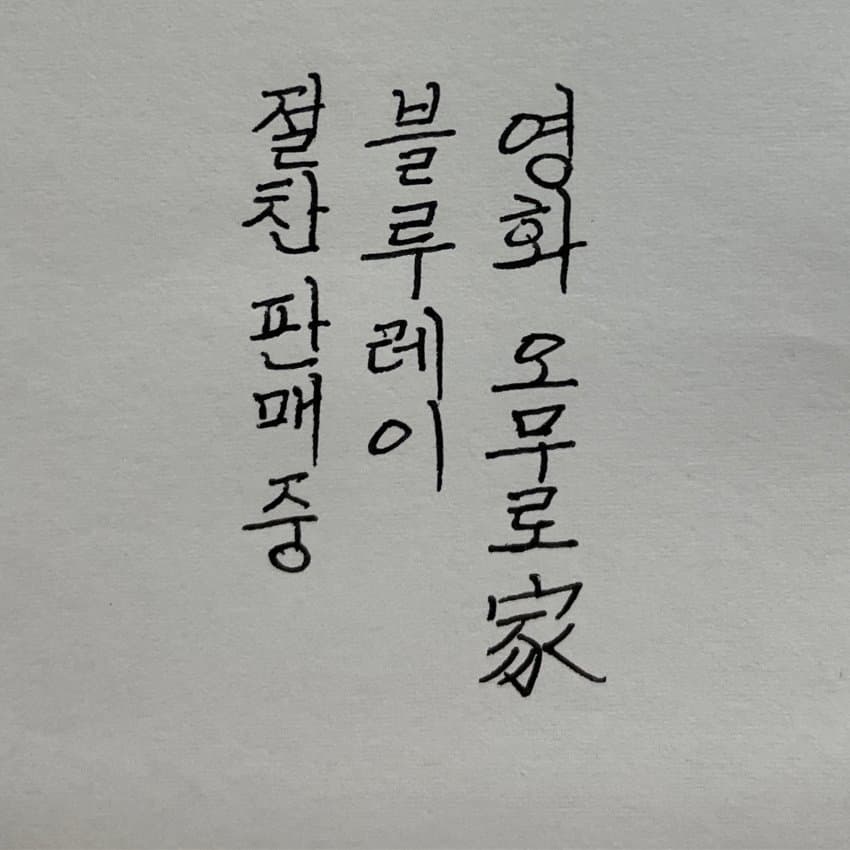 영화 오무로家
블루레이
절찬 판매중